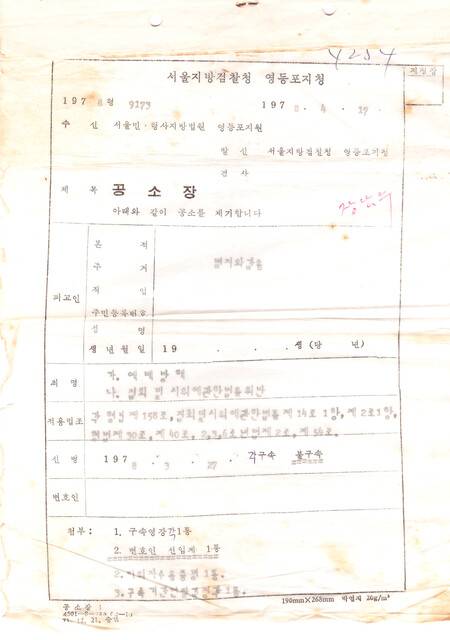 4254
서울지방검찰청 영등포지청
직정갑
197 8 형 9173 1978 . 4 . 17 .
수 신 서울민·형사지방법원 영등포지원
발 신 서울지방검찰청 영등포지청
검 사
제 목 공 소 장
아래와 같이 공소를 제기합니다
피고인
본 적
주 거 별지와같음
직 업
주민등록번호
성 명
생년월일 19 . . . 생 (당 년)
죄 명 가. 예배방해
나. 집회및시위에관한법률위반
적용법조 각 형법제158호, 집회및시위에관한법률제14조1항, 제2조1항,
형법제30조, 제40조, 소년법제2조, 제54조.
신 병 1978 . 3 . 27 . 각구속 불구속
변호인
첨부 : 1. 구속영장각1통
2. 변호인 선임계 1통
1통.
공 소 장 1
190mm×268mm